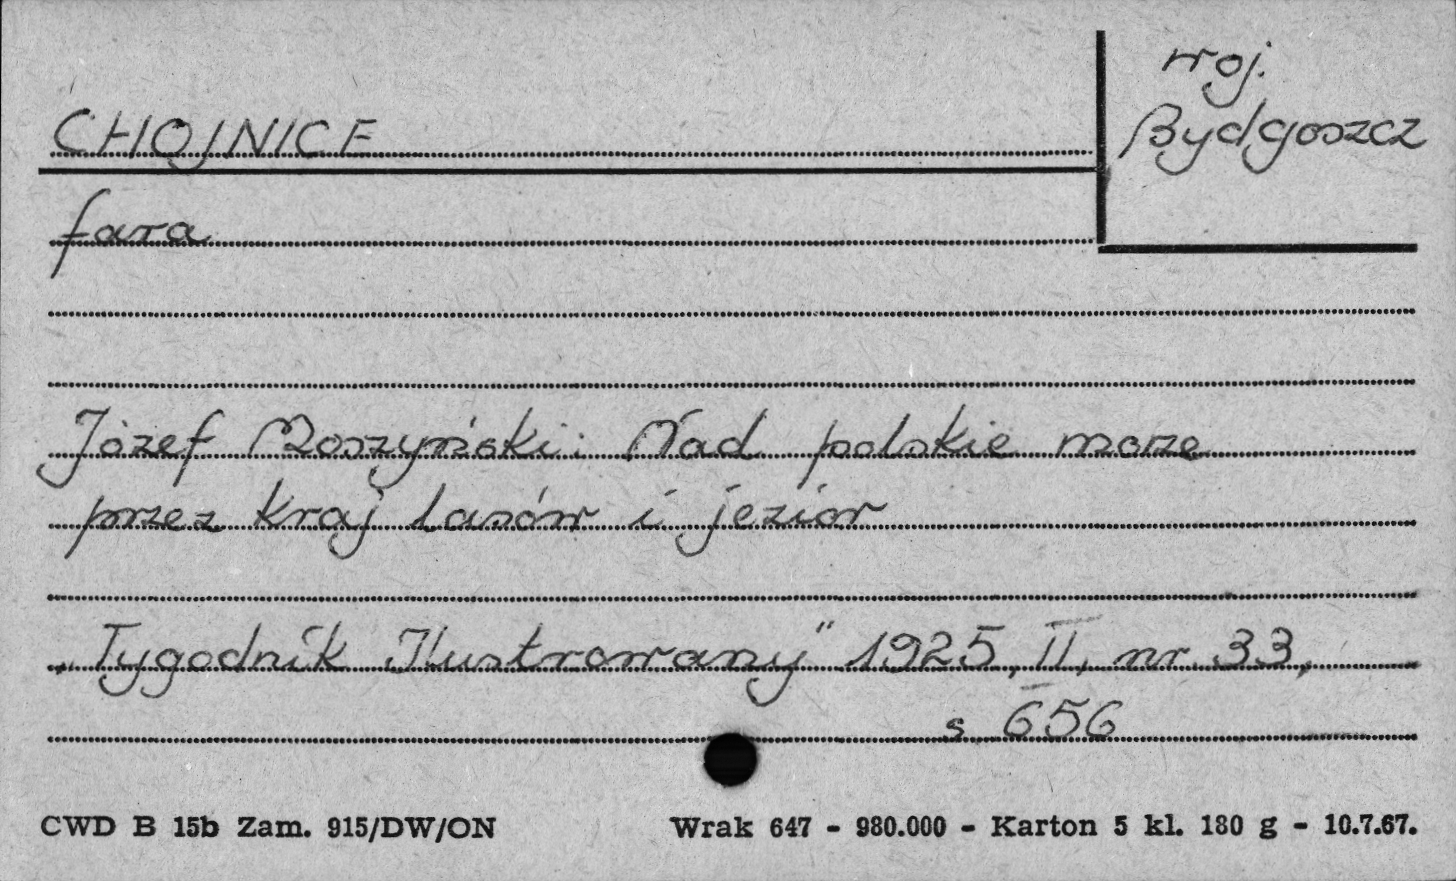 woj.
Bydgoszcz
CHOJNICE
fara
Józef Moszyński: Nad polskie morze
przez kraj lasów i jezior
„Tygodnik Ilustrowany" 1925, II, nr 33,
s 656
CWD B 15b Zam. 915/DW/ON Wrak 647 - 980.000 - Karton 5 kl. 180 g - 10.7.67.